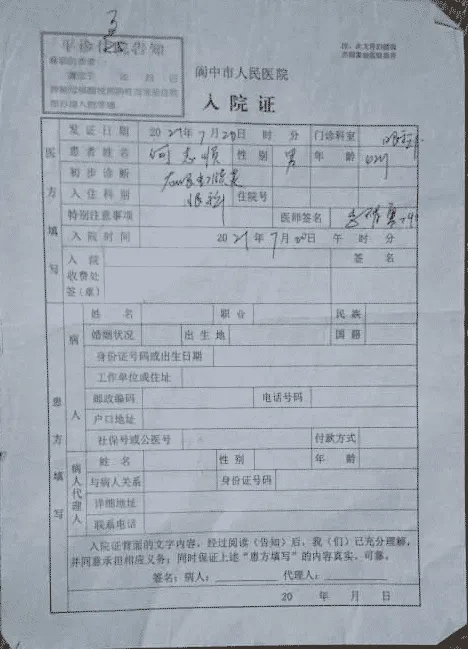 阆中市人民医院
入院证
发证日期 2021年7月20日 时 分 门诊科室 眼科
患者姓名 何志顺 性别 男 年龄
初步诊断
入住科别 眼科 住院号
特别注意事项 医师签名
入院时间 2021年7月20日 午 时 分
入院收费处签(章) 签名
医方填写
姓名 职业 民族
婚姻状况 出生地 国籍
身份证号码或出生日期
工作单位或住址
邮政编码 电话号码
户口地址
社保号或公医号 付款方式
病人
姓名 性别 年龄
与病人关系 身份证号码
详细地址
联系电话
病人代理人
患方填写
入院证背面的文字内容,经过阅读(告知)后,我(们)已充分理解,
并同意承担相应义务;同时保证上述“患方填写”的内容真实、可靠。
签名:病人: 代理人:
20 年 月 日